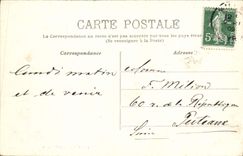 CARTE POSTALE
La Correspondance au recto n'est pas acceptée par tous les pays étrangers
(Se renseigner à la Poste)
Correspondance
Adresse
Lundi matin
et de venir
Monsieur
F. Milion
60 r de la République
Puteaux
Seine
5